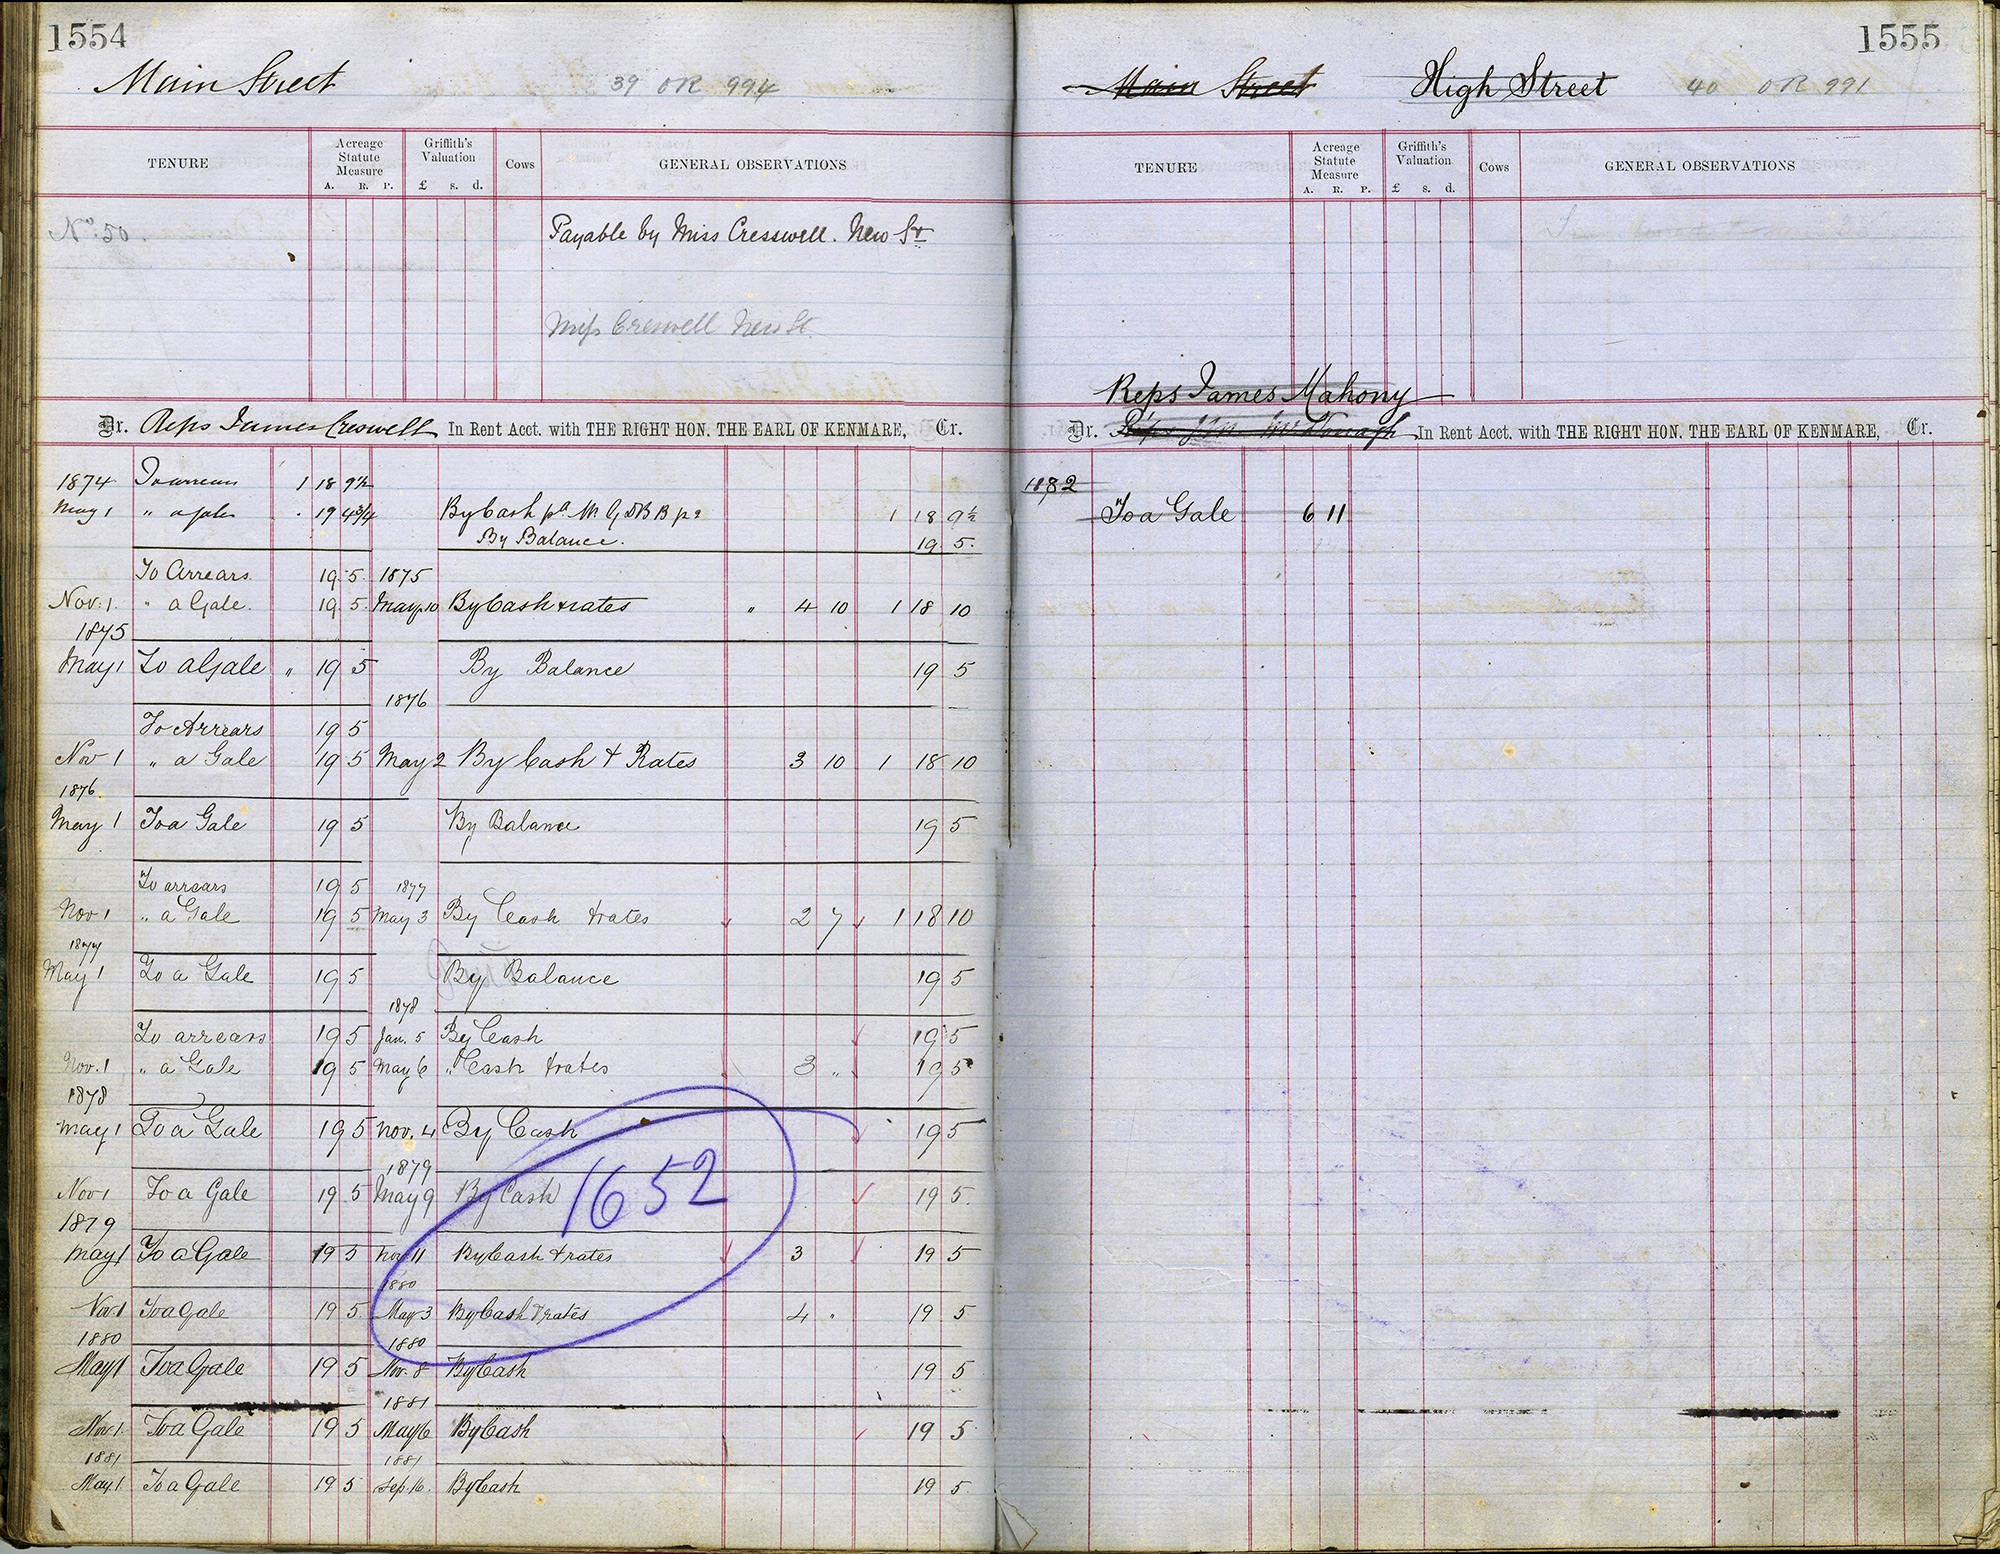 1554
Main Street 39 OR 994
TENURE Acreage Statute Measure A. R. P. Griffith's Valuation £ s. d. Cows GENERAL OBSERVATIONS
No. 50. Payable by Miss Cresswell. New St
Miss Creswell New St.
Dr. Reps James Creswell In Rent Acct. with THE RIGHT HON. THE EARL OF KENMARE, Cr.
1874 To arrears 1 18 9½
May 1 " a gale . 19 4¾ By Cash 1 18 9½
By Balance. 19. 5.
To Arrears. 19. 5. 1875
Nov. 1. " a Gale. 19. 5. May 10 By Cash & rates " 4 10 1 18 10
1875
May 1 To a Gale " 19 5 By Balance 19 5
1876
To Arrears 19 5
Nov 1 " a Gale 19 5 May 2 By Cash & Rates 3 10 1 18 10
1876.
May 1 To a Gale 19 5 By Balance 19 5
To arrears 19 5 1877
Nov 1 " a Gale 19 5 May 3 By Cash & rates 2 7 1 18 10
1877
May 1 To a Gale 19 5 By Balance 19 5
1878
To arrears 19 5 Jan. 5 By Cash 19 5
Nov. 1 " a Gale 19 5 May 6 " Cash & rates 3 " 19 5
1878
May 1 To a Gale 19 5 Nov. 4 By Cash 19 5
1879
1652
Nov 1 To a Gale 19 5 May 9 By Cash 19 5.
1879
May 1 To a Gale 19 5 Nov 11 By Cash & rates 3 19 5
1880
Nov 1 To a Gale 19 5. May 3 By Cash & rates 4 . 19 5
1880 1880
May 1 To a Gale 19 5 Nov. 8 By Cash 19 5
1881
Nov. 1. To a Gale 19 5 May 6 By Cash 19 5
1881 1881
May 1 To a Gale 19 5 Sep. 16. By Cash 19 5.
1555
Main Street High Street 40 OR 991
TENURE Acreage Statute Measure A. R. P. Griffith's Valuation £ s. d. Cows GENERAL OBSERVATIONS
Reps James Mahony
Dr. In Rent Acct. with THE RIGHT HON. THE EARL OF KENMARE, Cr.
1882
To a Gale 6 11